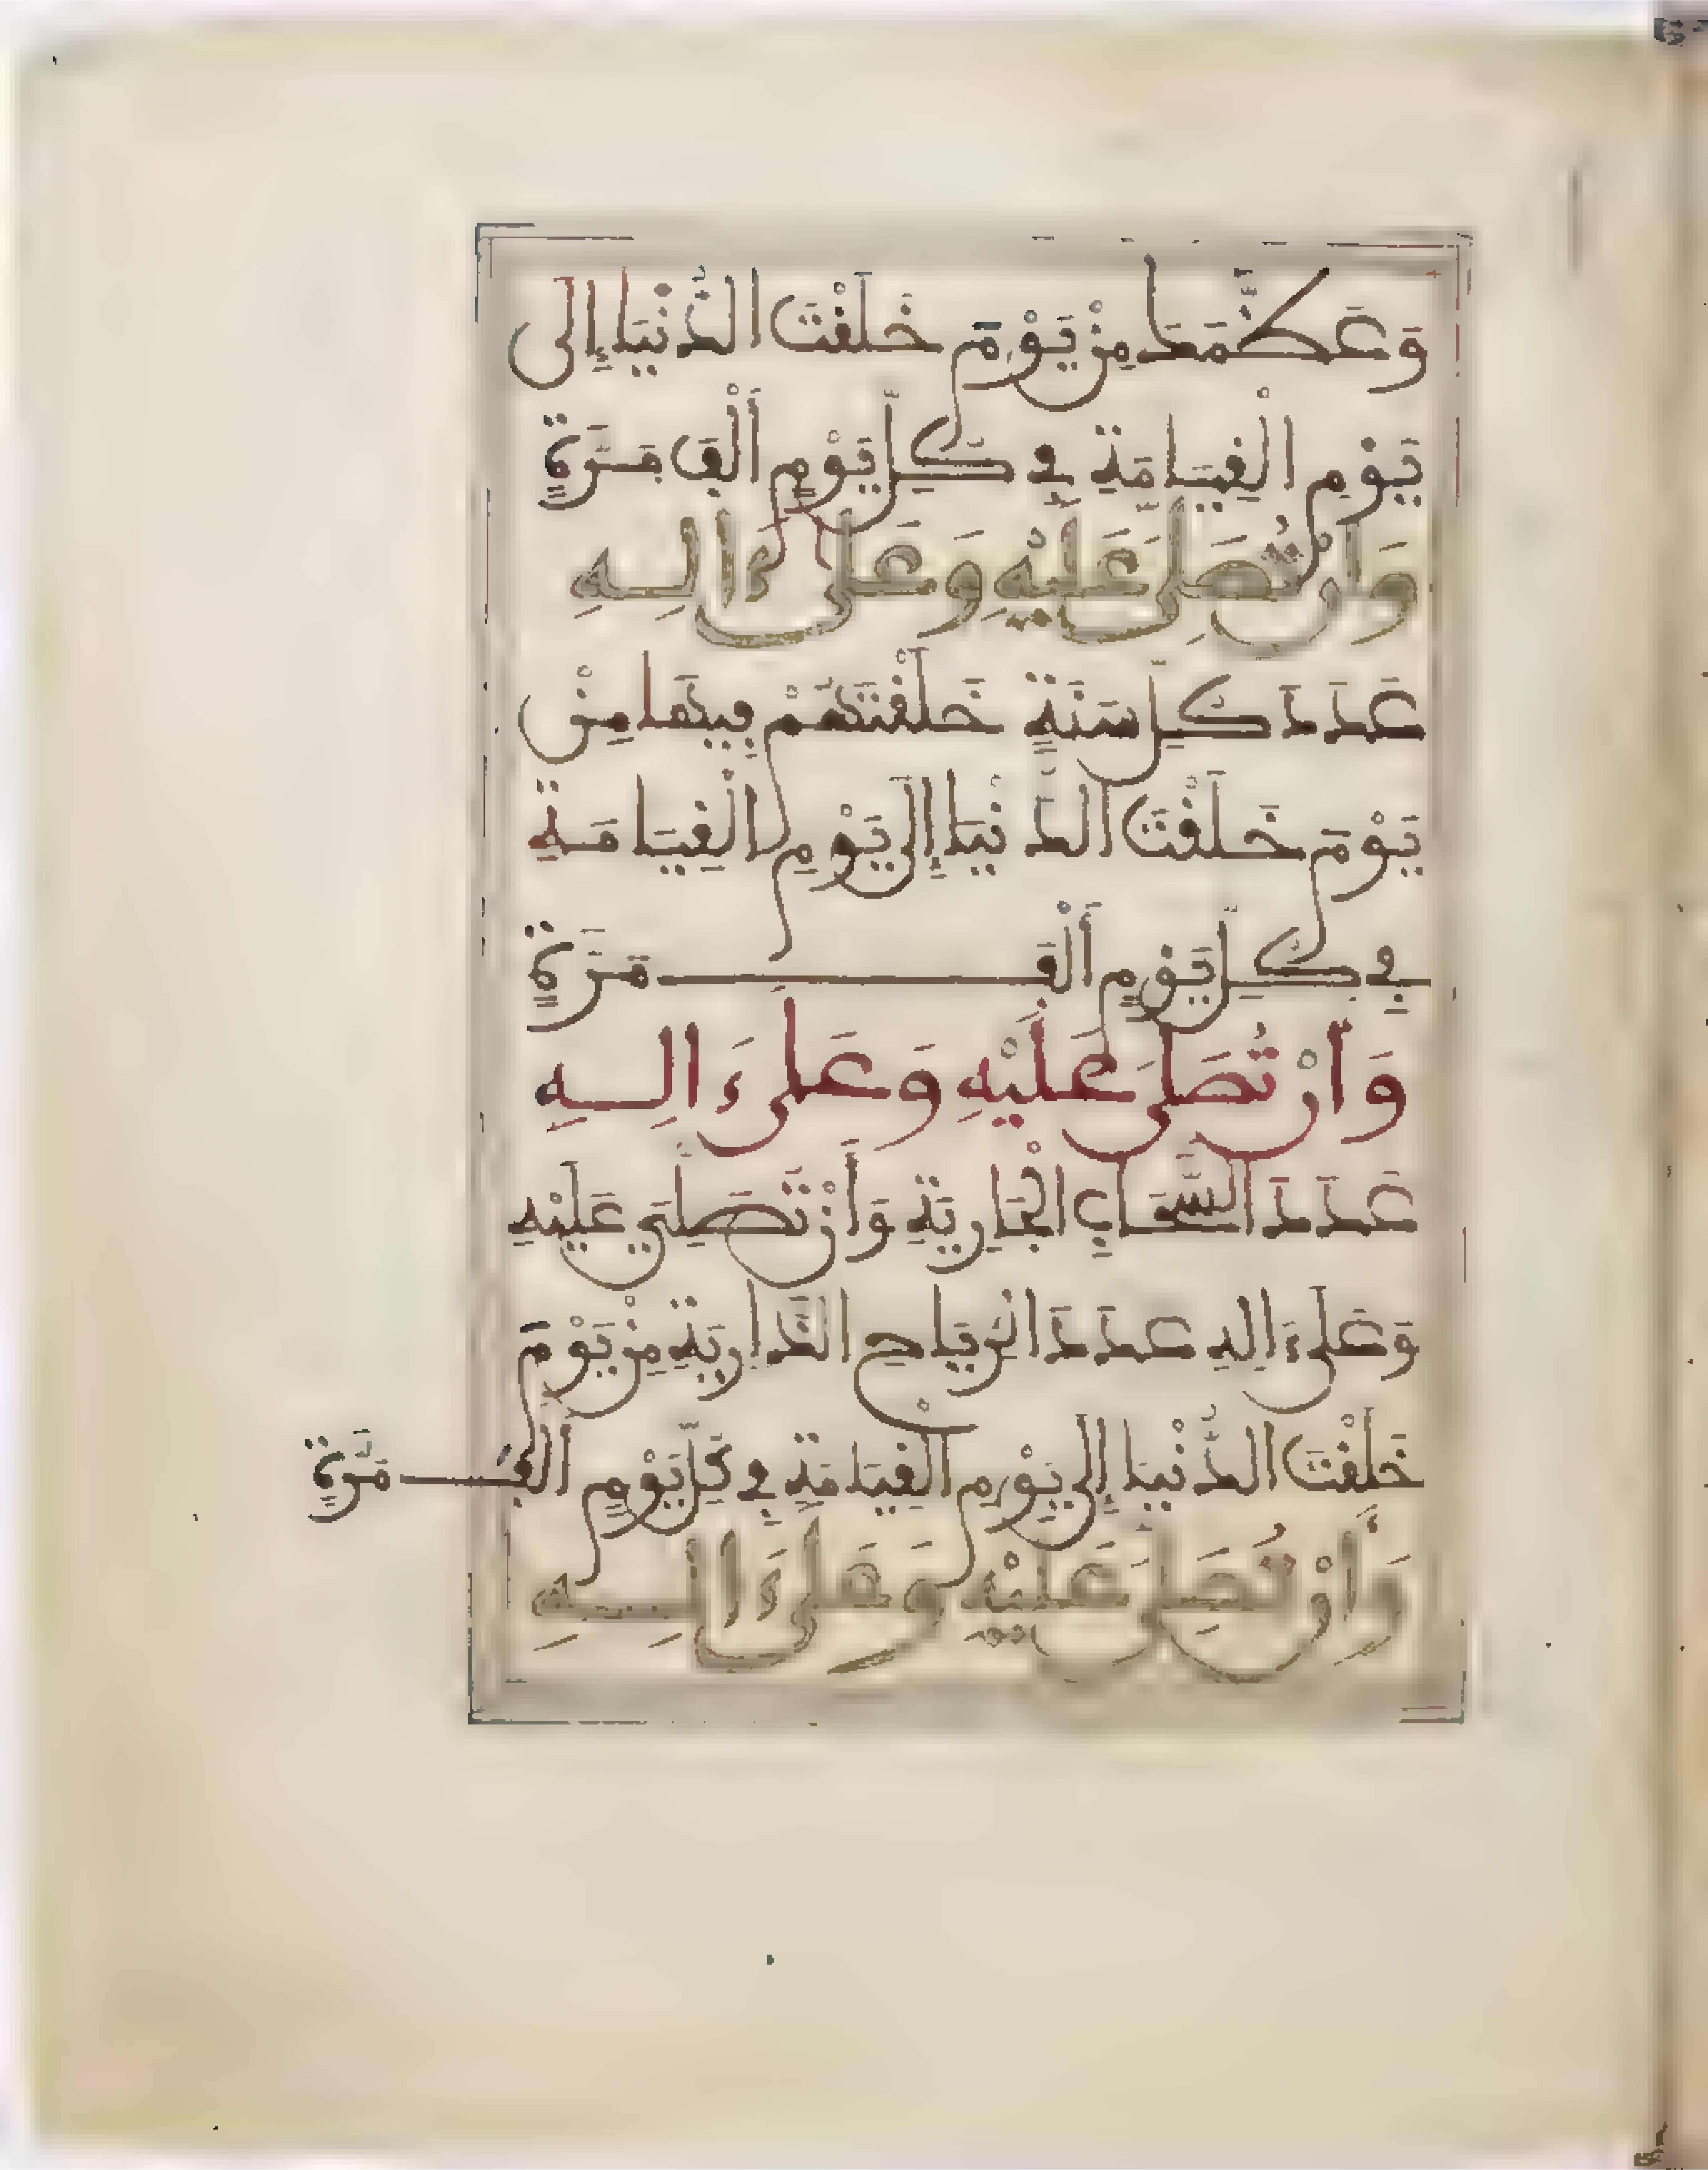 وَعَظَّمَكَ مِنْ يَوْمَ خَلَقْتَ الدُّنْيَا إِلَى
يَوْمِ الْقِيَامَةِ فِي كُلِّ يَوْمٍ أَلْفَ مَرَّةٍ
وَأَنْ تُصَلِّيَ عَلَيْهِ وَعَلَى ءَالِهِ
عَدَدَ كُلِّ سَنَةٍ خَلَقْتَهُمْ فِيهَا مِنْ
يَوْمَ خَلَقْتَ الدُّنْيَا إِلَى يَوْمِ الْقِيَامَةِ
فِي كُلِّ يَوْمٍ أَلْفَ مَرَّةٍ
وَأَنْ تُصَلِّيَ عَلَيْهِ وَعَلَى ءَالِهِ
عَدَدَ السَّحَابِ الْجَارِيَةِ وَأَنْ تُصَلِّيَ عَلَيْهِ
وَعَلَى ءَالِهِ عَدَدَ الرِّيَاحِ الذَّارِيَةِ مِنْ يَوْمَ
خَلَقْتَ الدُّنْيَا إِلَى يَوْمِ الْقِيَامَةِ فِي كُلِّ يَوْمٍ أَلْفَ مَرَّةٍ
وَأَنْ تُصَلِّيَ عَلَيْهِ وَعَلَى ءَالِهِ